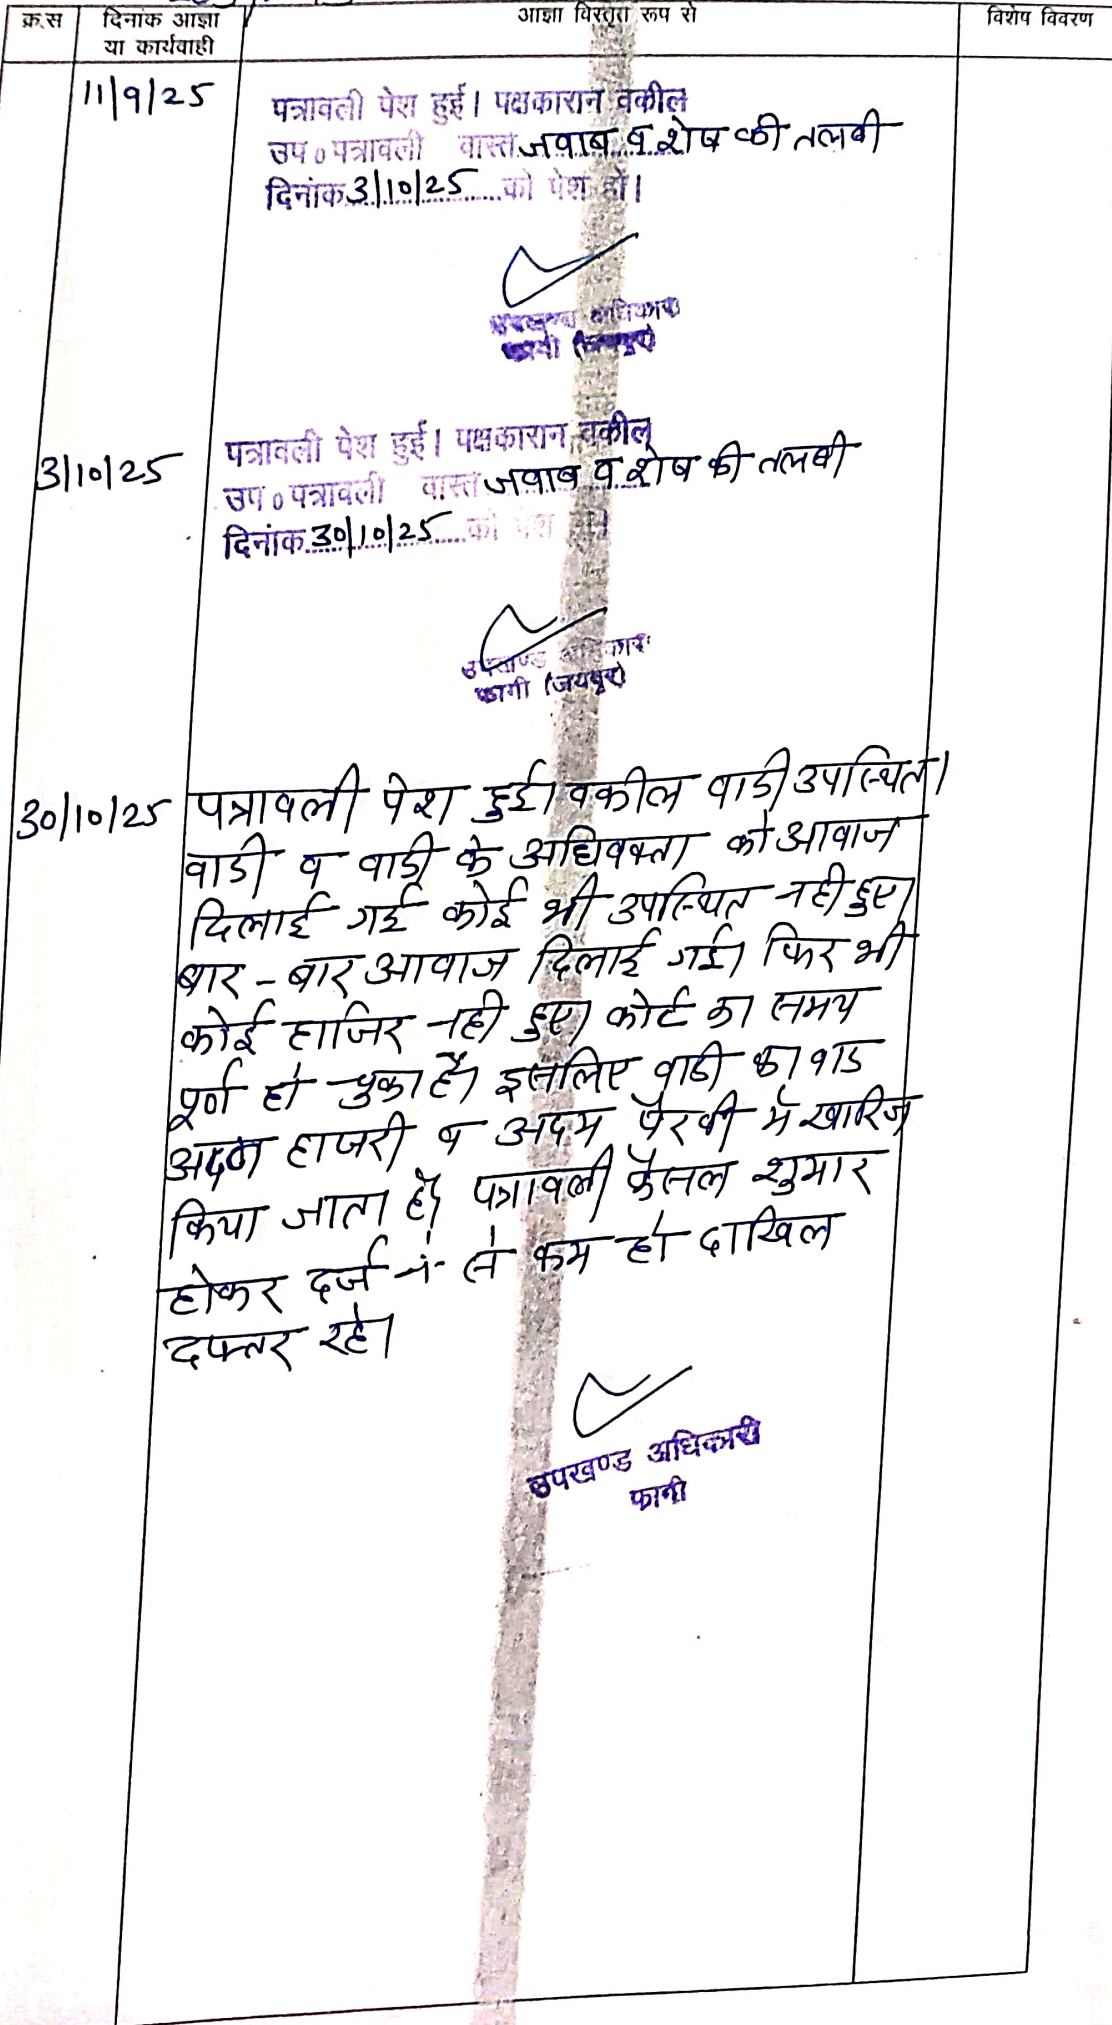 क्र.स दिनांक आज्ञा आज्ञा विस्तृत रूप से विशेष विवरण
या कार्यवाही
11/9/25 पत्रावली पेश हुई। पक्षकारान वकील
उप० पत्रावली वास्ते जवाब व शेष की तलबी
दिनांक 3/10/25 को पेश हो।
उपखण्ड अधिकारी
फागी (जयपुर)
पत्रावली पेश हुई। पक्षकारान वकील
3/10/25 उप० पत्रावली वास्ते जवाब व शेष की तलबी
दिनांक 30/10/25 को पेश हो।
उपखण्ड अधिकारी
फागी (जयपुर)
30/10/25 पत्रावली पेश हुई। वकील वादी उपस्थित।
वादी व वादी के अधिवक्ता को आवाज
दिलाई गई कोई भी उपस्थित नही हुए।
बार-बार आवाज दिलाई गई। फिर भी
कोई हाजिर नही हुए। कोर्ट का समय
पूर्ण हो चुका है। इसलिए वादी का वाद
अदम हाजरी व अदम पैरवी में खारिज
किया जाता है। पत्रावली फैसल शुमार
होकर दर्ज नं. से कम हो दाखिल
दफ्तर रहे।
उपखण्ड अधिकारी
फागी